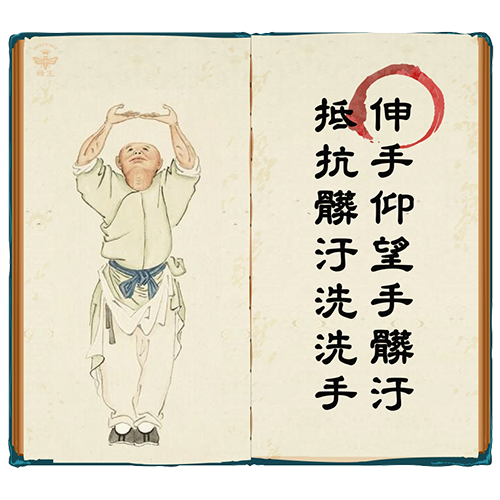 伸手仰望手髒汙
抵抗髒汙洗洗手
蜂王